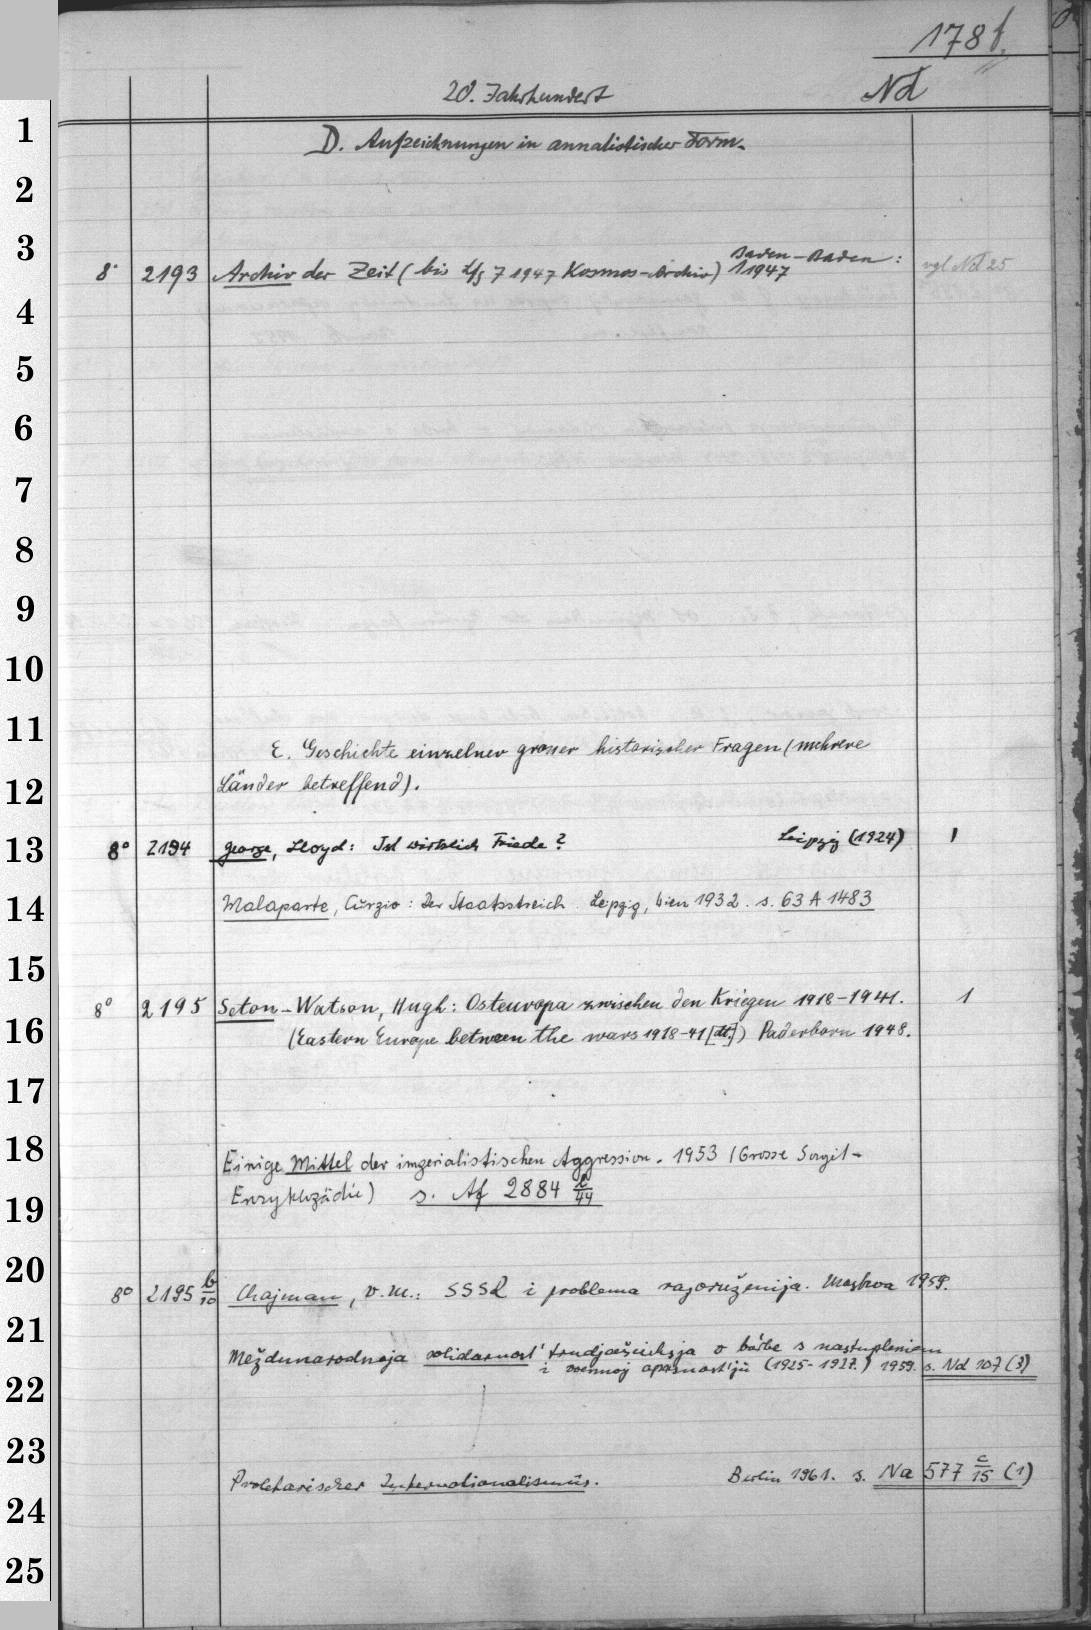 178 f.
20. Jahrhundert Nd
1
D. Aufzeichnungen in annalistischer Form.
2
3
8° 2193 Archiv der Zeit (bis 4/5 7 1947 Kosmos-Archiv) Baden-Baden: 1 1947 vgl Nd 25
4
5
6
7
8
9
10
11
E. Geschichte einzelner grosser historischer Fragen (mehrere
12
Länder betreffend).
13
8° 2194 George, Lloyd: Ist wirklich Friede? Leipzig (1924) 1
14
Malaparte, Curzio: Der Staatsstreich. Leipzig, Wien 1932. s. 63 A 1483
15
8° 2195 Seton-Watson, Hugh: Osteuropa zwischen den Kriegen 1918-1941. 1
16
(Eastern Europe between the wars 1918-41 [dt.]) Paderborn 1948.
17
18
Einige Mittel der imperialistischen Aggression. 1953 (Grosse Sovjet-
19
Enzyklopädie) s. Af 2884 l/44
20
8° 2195 b/10 Chajman, V. M.: SSSR i problema razoruženija. Moskva 1959.
21
Meždunarodnaja solidarnost' trudjaščichsja v bor'be s nastupleniem
22
i voennoj opasnost'ju (1925-1927.) 1959. s. Nd 107 (3)
23
Proletarischer Internationalismus. Berlin 1961. s. Na 577 c/15 (1)
24
25